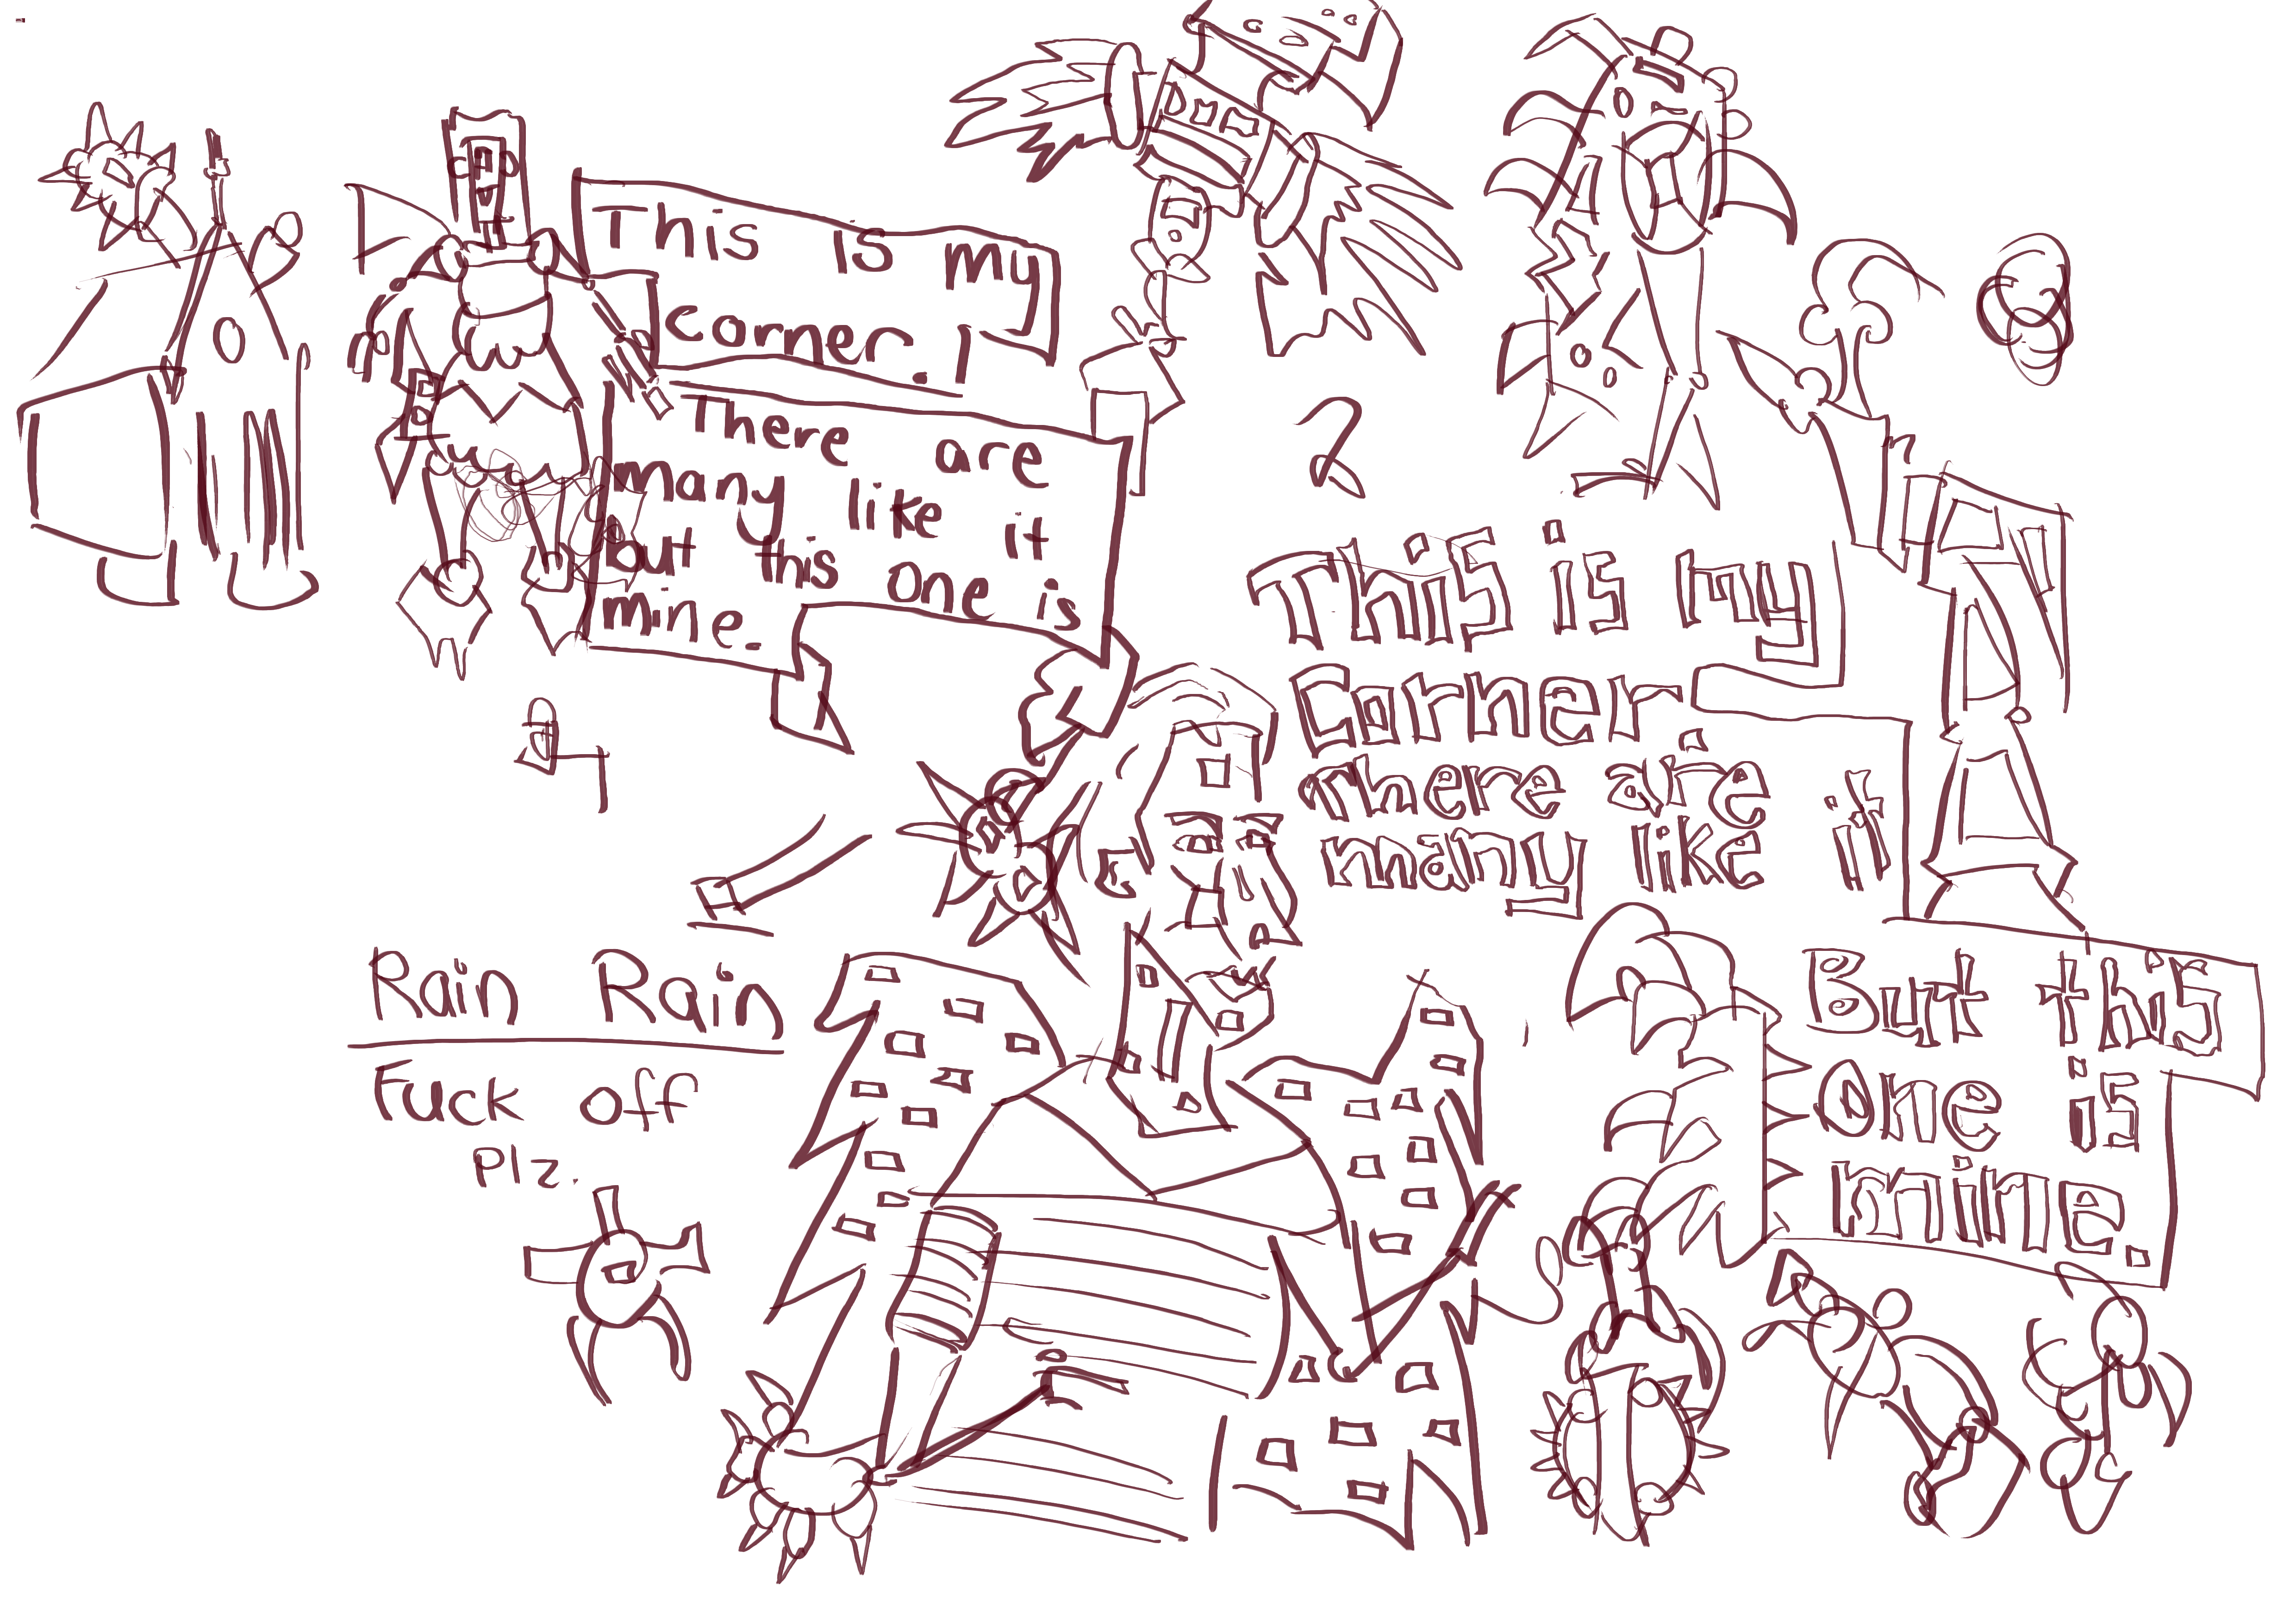 This is my
corner.
There are
many like it
but this one is
mine.
2
This is my
Corner.
There are
many like it
But this
One is
mine.
Rain Rain
Fuck off
Plz.